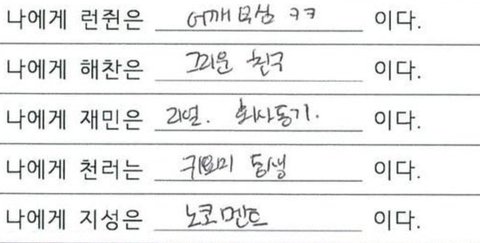 나에게 런쥔은 어깨 뭉침 ㅋㅋ 이다.
나에게 해찬은 그리운 친구 이다.
나에게 재민은 리얼. 회사동기. 이다.
나에게 천러는 귀요미 동생 이다.
나에게 지성은 노코멘트 이다.